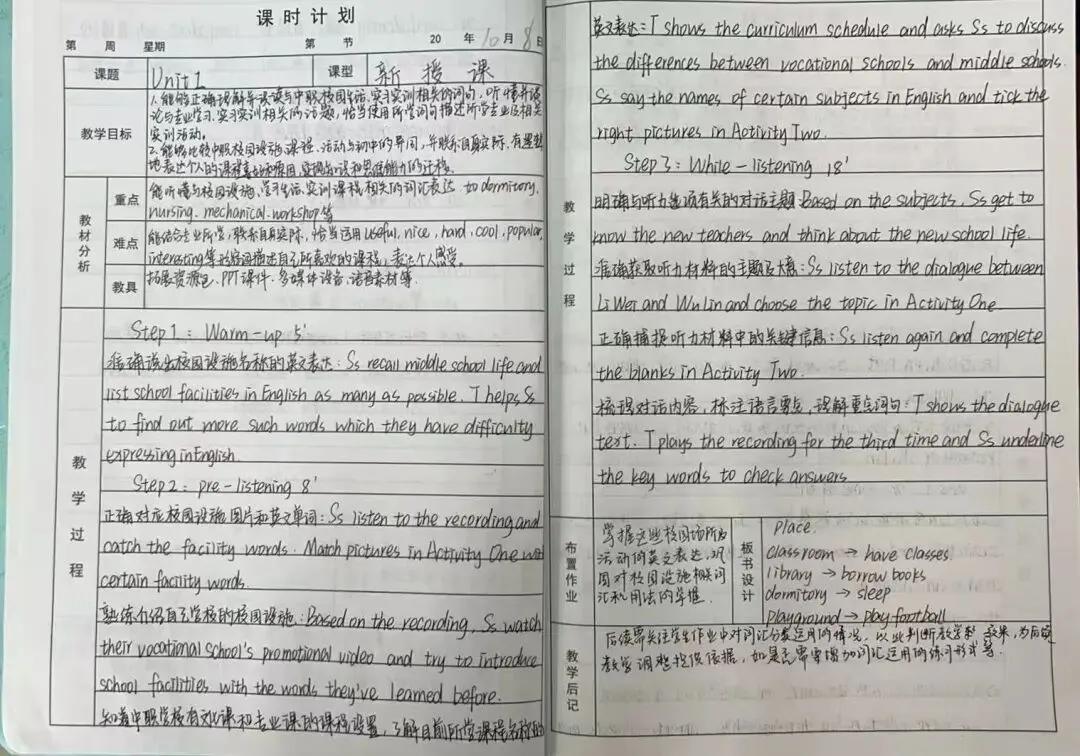 课时计划
第 周 星期 第 节 20 年 10 月 8 日
课题 Unit 1 课型 新授课
教学目标
1.能够正确理解并谈论与中职校园生活、实习实训相关的词句,听懂并谈
论与专业学习、实习实训相关的话题,恰当使用所学词句描述所学专业及相关
实训活动。
2.能够比较中职校园设施、课程、活动与初中的异同,并联系自身实际,有逻辑
地表达个人的课程喜好和原因,实现知识和思维能力的迁移。
教材分析
重点 能听懂与校园设施、学习生活、实训课程相关的词汇表达 to dormitory,
nursing. mechanical. workshop等
难点 能结合专业所学,联系自身实际,恰当运用useful, nice, hard, cool, popular,
interesting等形容词描述自己所喜欢的课程,表达个人感受。
教具 拓展资源包、PPT课件、多媒体设备、语音素材等.
教学过程
Step 1: Warm-up 5'
准确说出校园设施名称的英文表达: Ss recall middle school life and
list school facilities in English as many as possible. T helps Ss
to find out more such words which they have difficulty
expressing in English.
Step 2: pre-listening 8'
正确对应校园设施图片和英文单词: Ss listen to the recording and
catch the facility words. Match pictures in Activity One with
certain facility words.
熟练介绍自己学校的校园设施: Based on the recording, Ss watch
their vocational school's promotional video and try to introduce
school facilities with the words they've learned before.
知道中职学校有文化课和专业课的课程设置,了解目前所学课程名称的
英文表达: T shows the curriculum schedule and asks Ss to discuss
the differences between vocational schools and middle schools.
Ss say the names of certain subjects in English and tick the
right pictures in Activity Two.
Step 3: While-listening 18'
教学过程
明确与听力选项有关的对话主题 Based on the subjects, Ss get to
know the new teachers and think about the new school life.
准确获取听力材料的主题及大意: Ss listen to the dialogue between
Li Wei and Wu Lin and choose the topic in Activity One.
正确捕捉听力材料中的关键信息: Ss listen again and complete
the blanks in Activity Two.
梳理对话内容,标注语言要点,理解重点词句: T shows the dialogue
text. T plays the recording for the third time and Ss underline
the key words to check answers
布置作业
掌握这些校园场所及
活动的英文表达,巩
固对校园设施相关词
汇和用法的掌握.
板书设计
Place.
classroom → have classes
library → borrow books
dormitory → sleep
playground → play football
教学后记
后续需关注学生作业中对词汇分类运用的情况,以此判断教学效果,为后续
教学调整提供依据,如是否需要增加词汇运用的练习形式等.